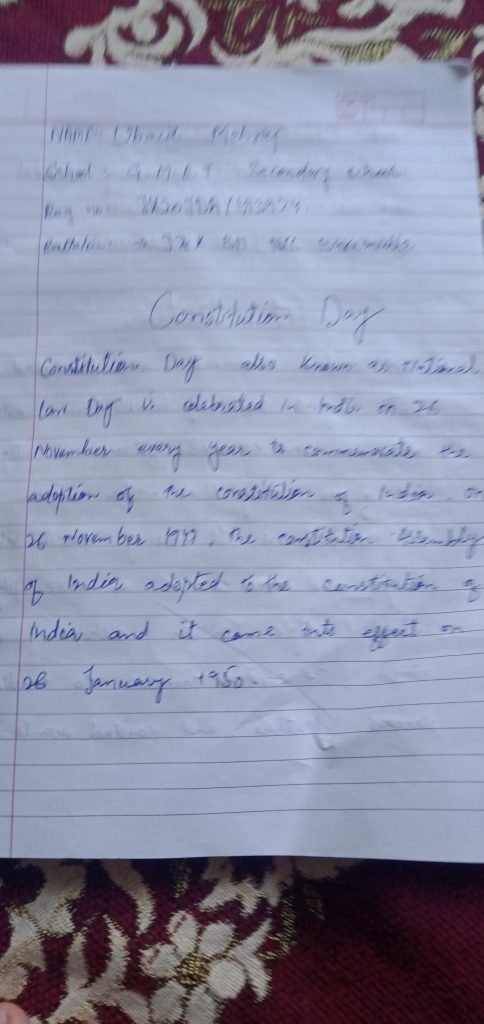 Name: Ubaid
School: G.M.D.T Secondary school
Reg no:
3 J&K BN NCC
Constitution Day
Constitution Day also known as National
Law Day is celebrated in India on 26
November every year to commemorate the
adoption of the constitution of India. on
26 November 1949, The constitution Assembly
of India adopted to the constitution of
India and it came into effect on
26 January 1950.